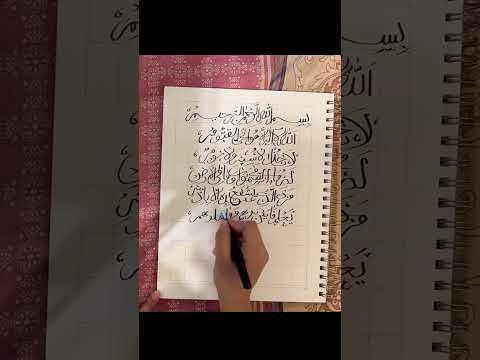 بسم الله الرحمن الرحيم
الله لا إله إلا هو الحي القيوم
لا تأخذه سنة ولا نوم
له ما في السموات وما في الأرض
من ذا الذي يشفع عنده إلا بإذنه
يعلم ما بين أيديهم